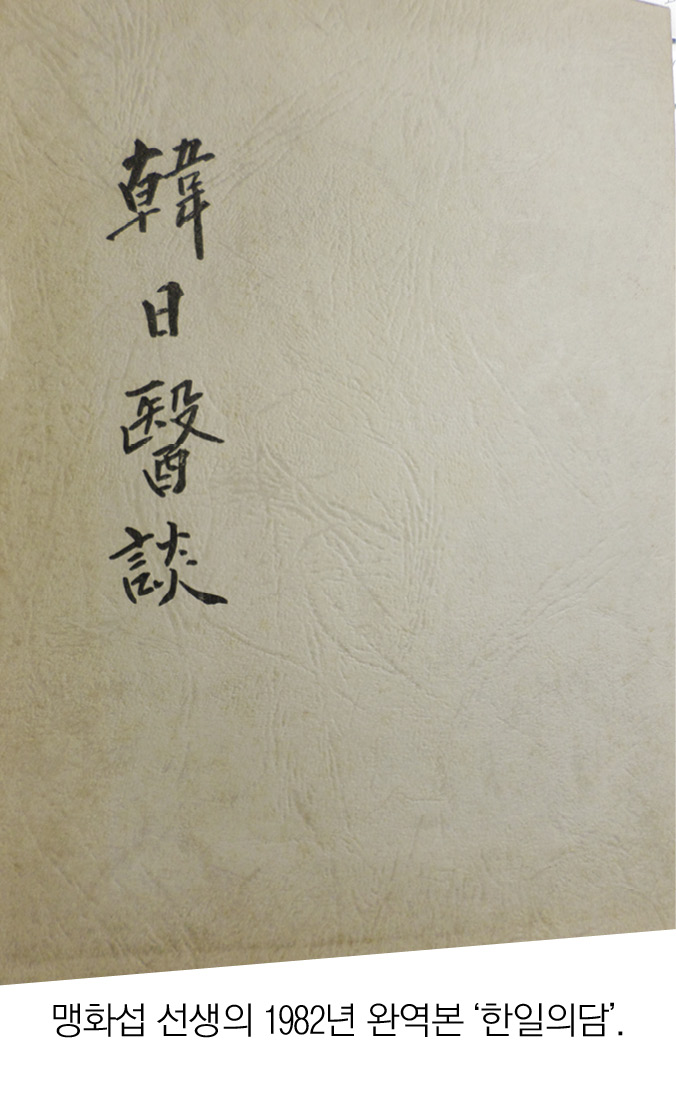 韓日醫談
맹화섭 선생의 1982년 완역본 ‘한일의담’.